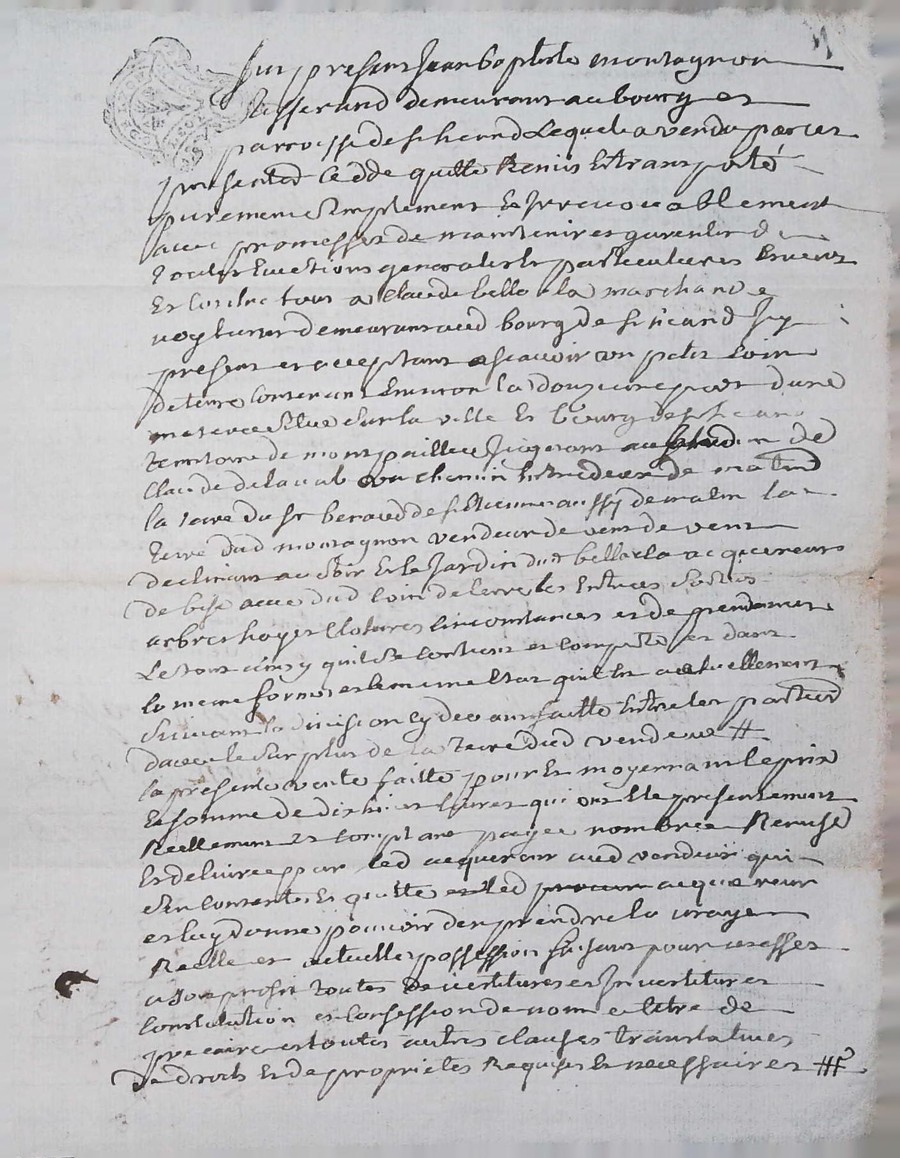 fut present Jean baptiste montagnon
tisserand demeurant au bourg et
parroisse de st heand Lequel a vendu par ces
presentes cedde quitté Remis Et transporté
purement simplement Et Irrevocablement
avec promesses de maintenir et garentir de
toutes Evictions generalles Et particulieres Envers
Et Contre tous a Claude bella marchand
voyturier demeurant aud bourg de st heand Icy
present et acceptant ascavoir un petit Coin
de terre contenant Environ la douzieme part dune
meteree situe sur la ville Et bourg de st heand
territoire de Joignant au Jardin de
Claude delaval un chemin Entredeux de matin
la terre du sr beraud de st Etienne aussy de matin la
terre dud montagnon vendeur de vent de vent
declinant au soir Et le Jardin dud bella acquereur
de bise avec dud Coin de terre les Entrees sorties
arbres hayes Clotures Circonstances et dependances
Le tout ainsy quil se contient et comporte et dans
la meme forme et le meme Etat quil Est actuellement
suivant la division cy devant faitte Entre les parties
davec le surplus de la terre dud vendeur #
la presente vente faitte pour Et moyennant le prix
Et somme de livres qui ont Ete presentement
Reellement Et Comptant payee nombree Remise
Et delivree par led acquereur aud vendeur qui
sen contente Et quitte led acquereur
et luy donne pouvoir den prendre la vraye
Reelle et actuelle possession faisant pour ce
a son profit toutes devetitures et Investitures
Constitution et Confession de nom et titre de
precaire et toutes autres clauses translatives
de droits Et de proprietes Requises Et necessaires #